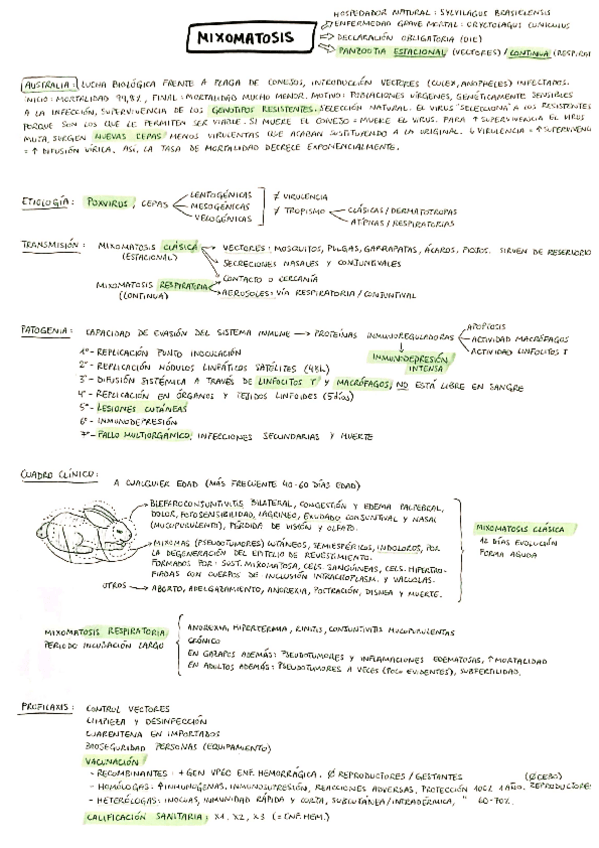 MIXOMATOSIS
HOSPEDADOR NATURAL: SYLVILAGUS BRASILENSIS
ENFERMEDAD GRAVE MORTAL: ORYCTOLAGUS CUNICULUS
DECLARACIÓN OBLIGATORIA (OIE)
PANZOOTIA ESTACIONAL (VECTORES) / CONTINUA (RESPIRA
AUSTRALIA: LUCHA BIOLÓGICA FRENTE A PLAGA DE CONEJOS, INTRODUCCIÓN VECTORES (CULEX, ANOPHELES) INFECTADOS.
INICIO: MORTALIDAD 99,8%, FINAL: MORTALIDAD MUCHO MENOR. MOTIVO: POBLACIONES VÍRGENES, GENÉTICAMENTE SENSIBLES
A LA INFECCIÓN, SUPERVIVENCIA DE LOS GENOTIPOS RESISTENTES. SELECCIÓN NATURAL. EL VIRUS "SELECCIONA" A LOS RESISTENTES
PORQUE SON LOS QUE LE PERMITEN SER VIABLE. SI MUERE EL CONEJO = MUERE EL VIRUS. PARA ↑ SUPERVIVENCIA EL VIRUS
MUTA, SURGEN NUEVAS CEPAS MENOS VIRULENTAS QUE ACABAN SUSTITUYENDO A LA ORIGINAL. ↓ VIRULENCIA = ↑ SUPERVIVENC
= ↑ DIFUSIÓN VÍRICA. ASÍ, LA TASA DE MORTALIDAD DECRECE EXPONENCIALMENTE.
ETIOLOGÍA: POXVIRUS, CEPAS
LENTOGÉNICAS
MESOGÉNICAS
VELOGÉNICAS
≠ VIRULENCIA
≠ TROPISMO
CLÁSICAS / DERMATOTROPAS
ATÍPICAS / RESPIRATORIAS
TRANSMISIÓN: MIXOMATOSIS CLÁSICA → VECTORES: MOSQUITOS, PULGAS, GARRAPATAS, ÁCAROS, PIOJOS. SIRVEN DE RESERVORIO
(ESTACIONAL)
SECRECIONES NASALES Y CONJUNTIVALES
MIXOMATOSIS RESPIRATORIA
CONTACTO O CERCANÍA
(CONTINUA)
AEROSOLES: VÍA RESPIRATORIA / CONJUNTIVAL
PATOGENIA: CAPACIDAD DE EVASIÓN DEL SISTEMA INMUNE → PROTEÍNAS INMUNOREGULADORAS
APOPTOSIS
ACTIVIDAD MACRÓFAGOS
ACTIVIDAD LINFOCITOS T
INMUNODEPRESIÓN
INTENSA
1º- REPLICACIÓN PUNTO INOCULACIÓN
2º- REPLICACIÓN NÓDULOS LINFÁTICOS SATÉLITES (48h)
3º- DIFUSIÓN SISTÉMICA A TRAVÉS DE LINFOCITOS T Y MACRÓFAGOS, NO ESTÁ LIBRE EN SANGRE
4º- REPLICACIÓN EN ÓRGANOS Y TEJIDOS LINFOIDES (5 días)
5º- LESIONES CUTÁNEAS
6º- INMUNODEPRESIÓN
7º- FALLO MULTIORGÁNICO, INFECCIONES SECUNDARIAS Y MUERTE
CUADRO CLÍNICO:
A CUALQUIER EDAD (MÁS FRECUENTE 40-60 DÍAS EDAD)
BLEFAROCONJUNTIVITIS BILATERAL, CONGESTIÓN Y EDEMA PALPEBRAL,
DOLOR, FOTOSENSIBILIDAD, LAGRIMEO, EXUDADO CONJUNTIVAL Y NASAL
(MUCOPURULENTO), PÉRDIDA DE VISIÓN Y OLFATO.
MIXOMAS (PSEUDOTUMORES) CUTÁNEOS, SEMIESFÉRICOS, INDOLOROS, POR
LA DEGENERACIÓN DEL EPITELIO DE REVESTIMIENTO.
FORMADOS POR: SUST. MIXOMATOSA, CELS. SANGUÍNEAS, CELS. HIPERTRO-
FIADAS CON CUERPOS DE INCLUSIÓN INTRACITOPLASM. Y VACUOLAS.
OTROS → ABORTO, ADELGAZAMIENTO, ANOREXIA, POSTRACIÓN, DISNEA Y MUERTE.
MIXOMATOSIS CLÁSICA
12 DÍAS EVOLUCIÓN
FORMA AGUDA
MIXOMATOSIS RESPIRATORIA
PERIODO INCUBACIÓN LARGO
ANOREXIA, HIPERTERMIA, RINITIS, CONJUNTIVITIS MUCOPURULENTAS
CRÓNICO
EN GAZAPOS ADEMÁS: PSEUDOTUMORES Y INFLAMACIONES EDEMATOSAS, ↑ MORTALIDAD
EN ADULTOS ADEMÁS: PSEUDOTUMORES A VECES (POCO EVIDENTES), SUBFERTILIDAD.
PROFILAXIS: CONTROL VECTORES
LIMPIEZA Y DESINFECCIÓN
CUARENTENA EN IMPORTADOS
BIOSEGURIDAD PERSONAS (EQUIPAMIENTO)
VACUNACIÓN
- RECOMBINANTES: + GEN VP60 ENF. HEMORRÁGICA. Ø REPRODUCTORES / GESTANTES
- HOMÓLOGAS: ↑ INMUNÓGENAS, INMUNOSUPRESIÓN, REACCIONES ADVERSAS, PROTECCIÓN 90% 1 AÑO. REPRODUCTORES
- HETERÓLOGAS: INOCUAS, INMUNIDAD RÁPIDA Y CORTA, SUBCUTÁNEA / INTRADÉRMICA, " 60-70%
CALIFICACIÓN SANITARIA: X1, X2, X3 (= ENF. HEM.)